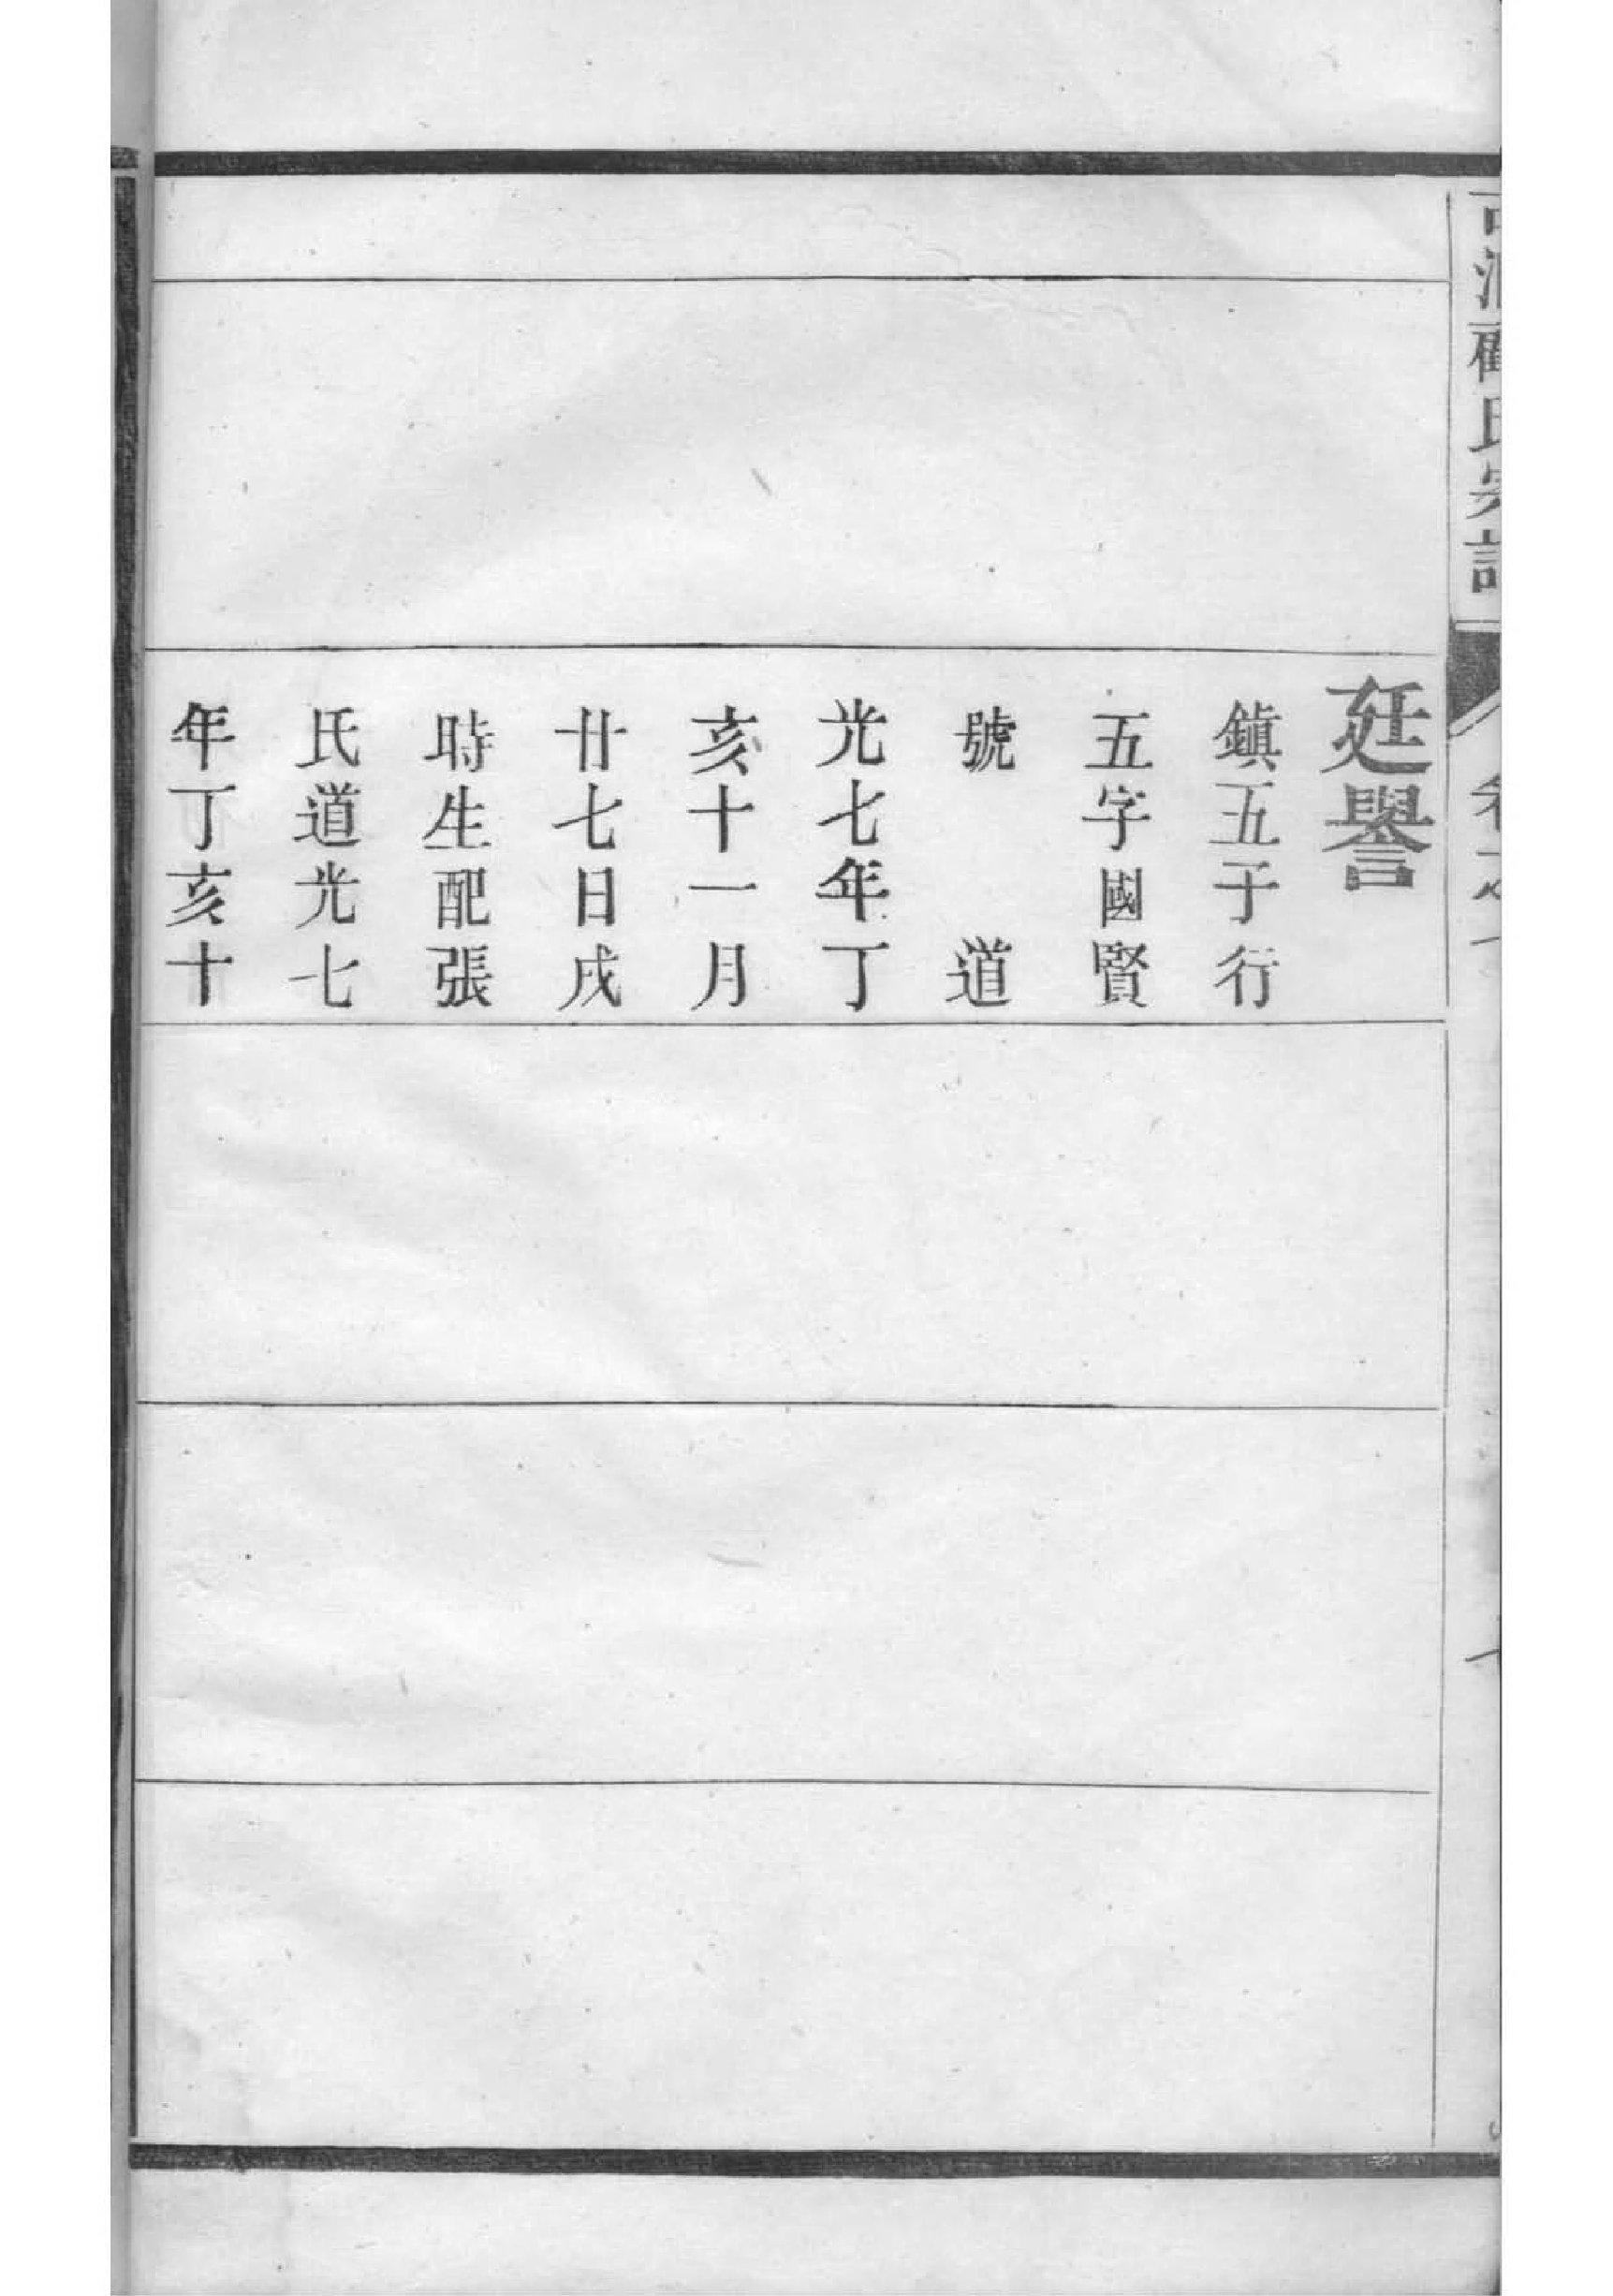 廷譽
鎮五子行
五字國賢
號　　道
光七年丁
亥十一月
廿七日戌
時生配張
氏道光七
年丁亥十